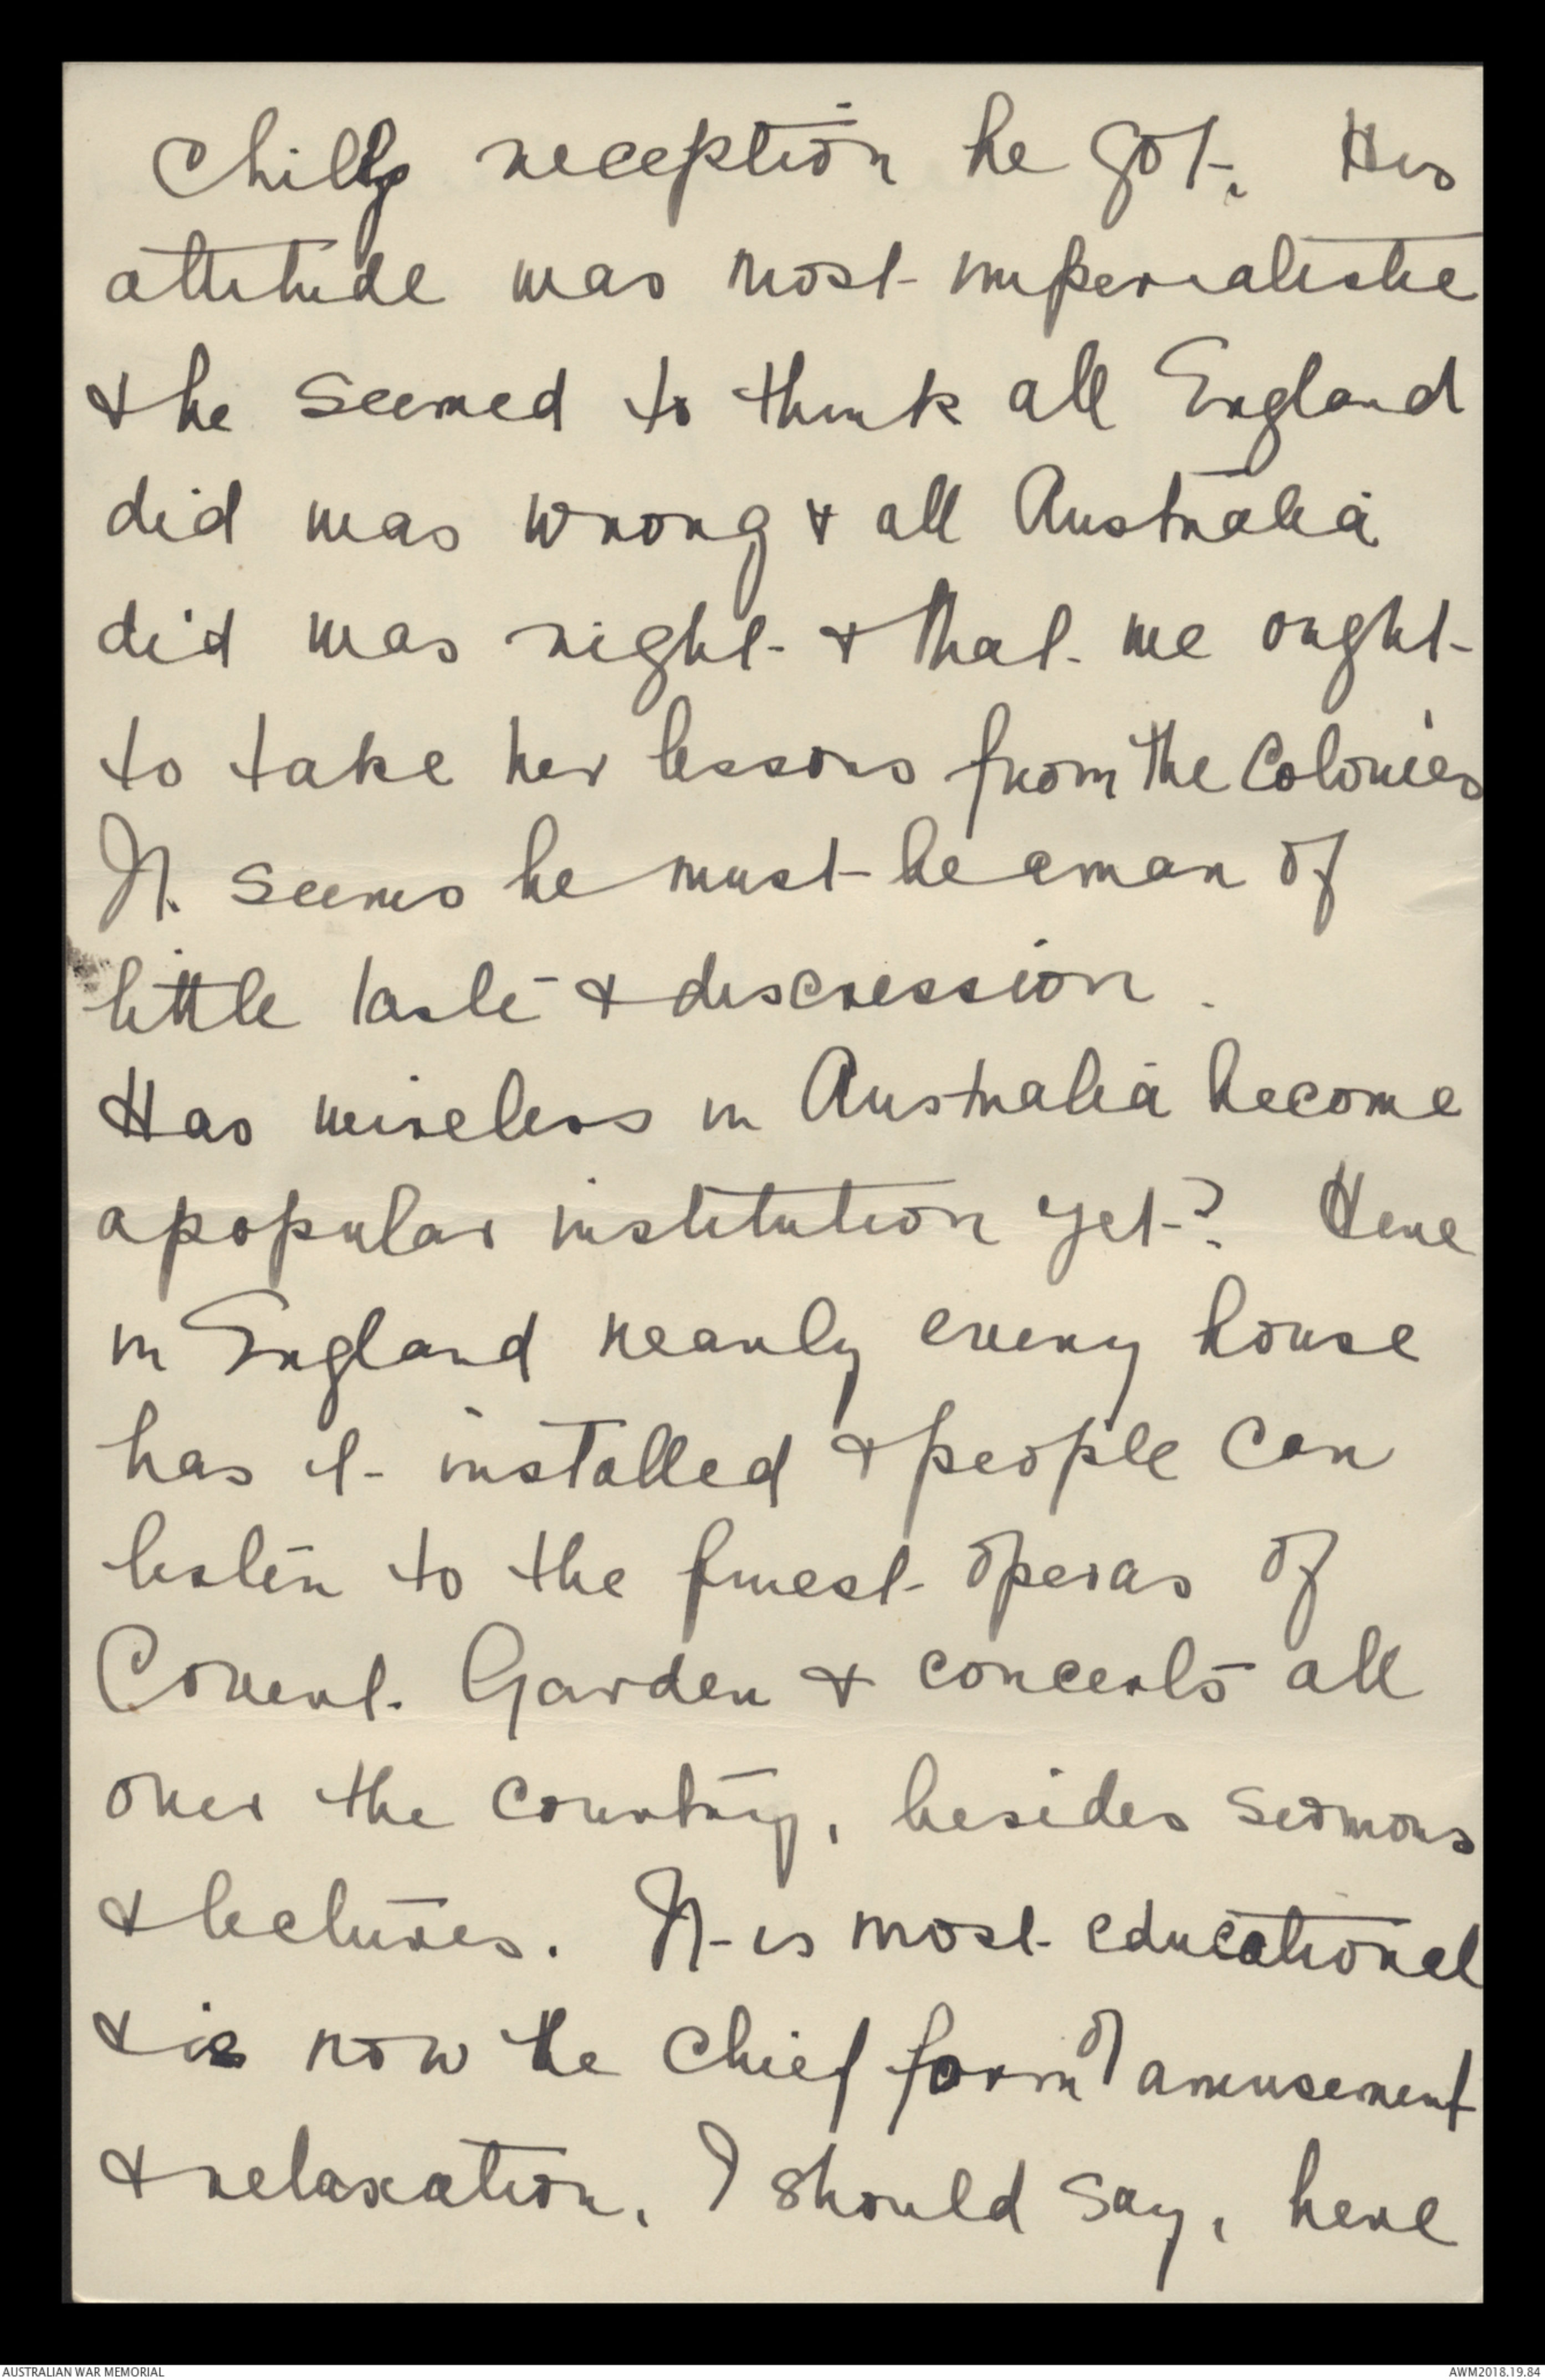 chilly reception he got. His
attitude was most imperialistic
& he seemed to think all England
did was wrong & all Australia
did was right & that we ought
to take her lessons from the Colonies
It seems he must be a man of
little taste & discression.
Has wireless in Australia become
a popular institution yet? Here
in England nearly every house
has it installed & people can
listen to the finest operas of
Covent Garden & concerts all
over the country, besides sermons
& lectures. It is most educational
& is now the chief form of amusement
& relaxation, I should say, here
AUSTRALIAN WAR MEMORIAL
AWM2018.19.84